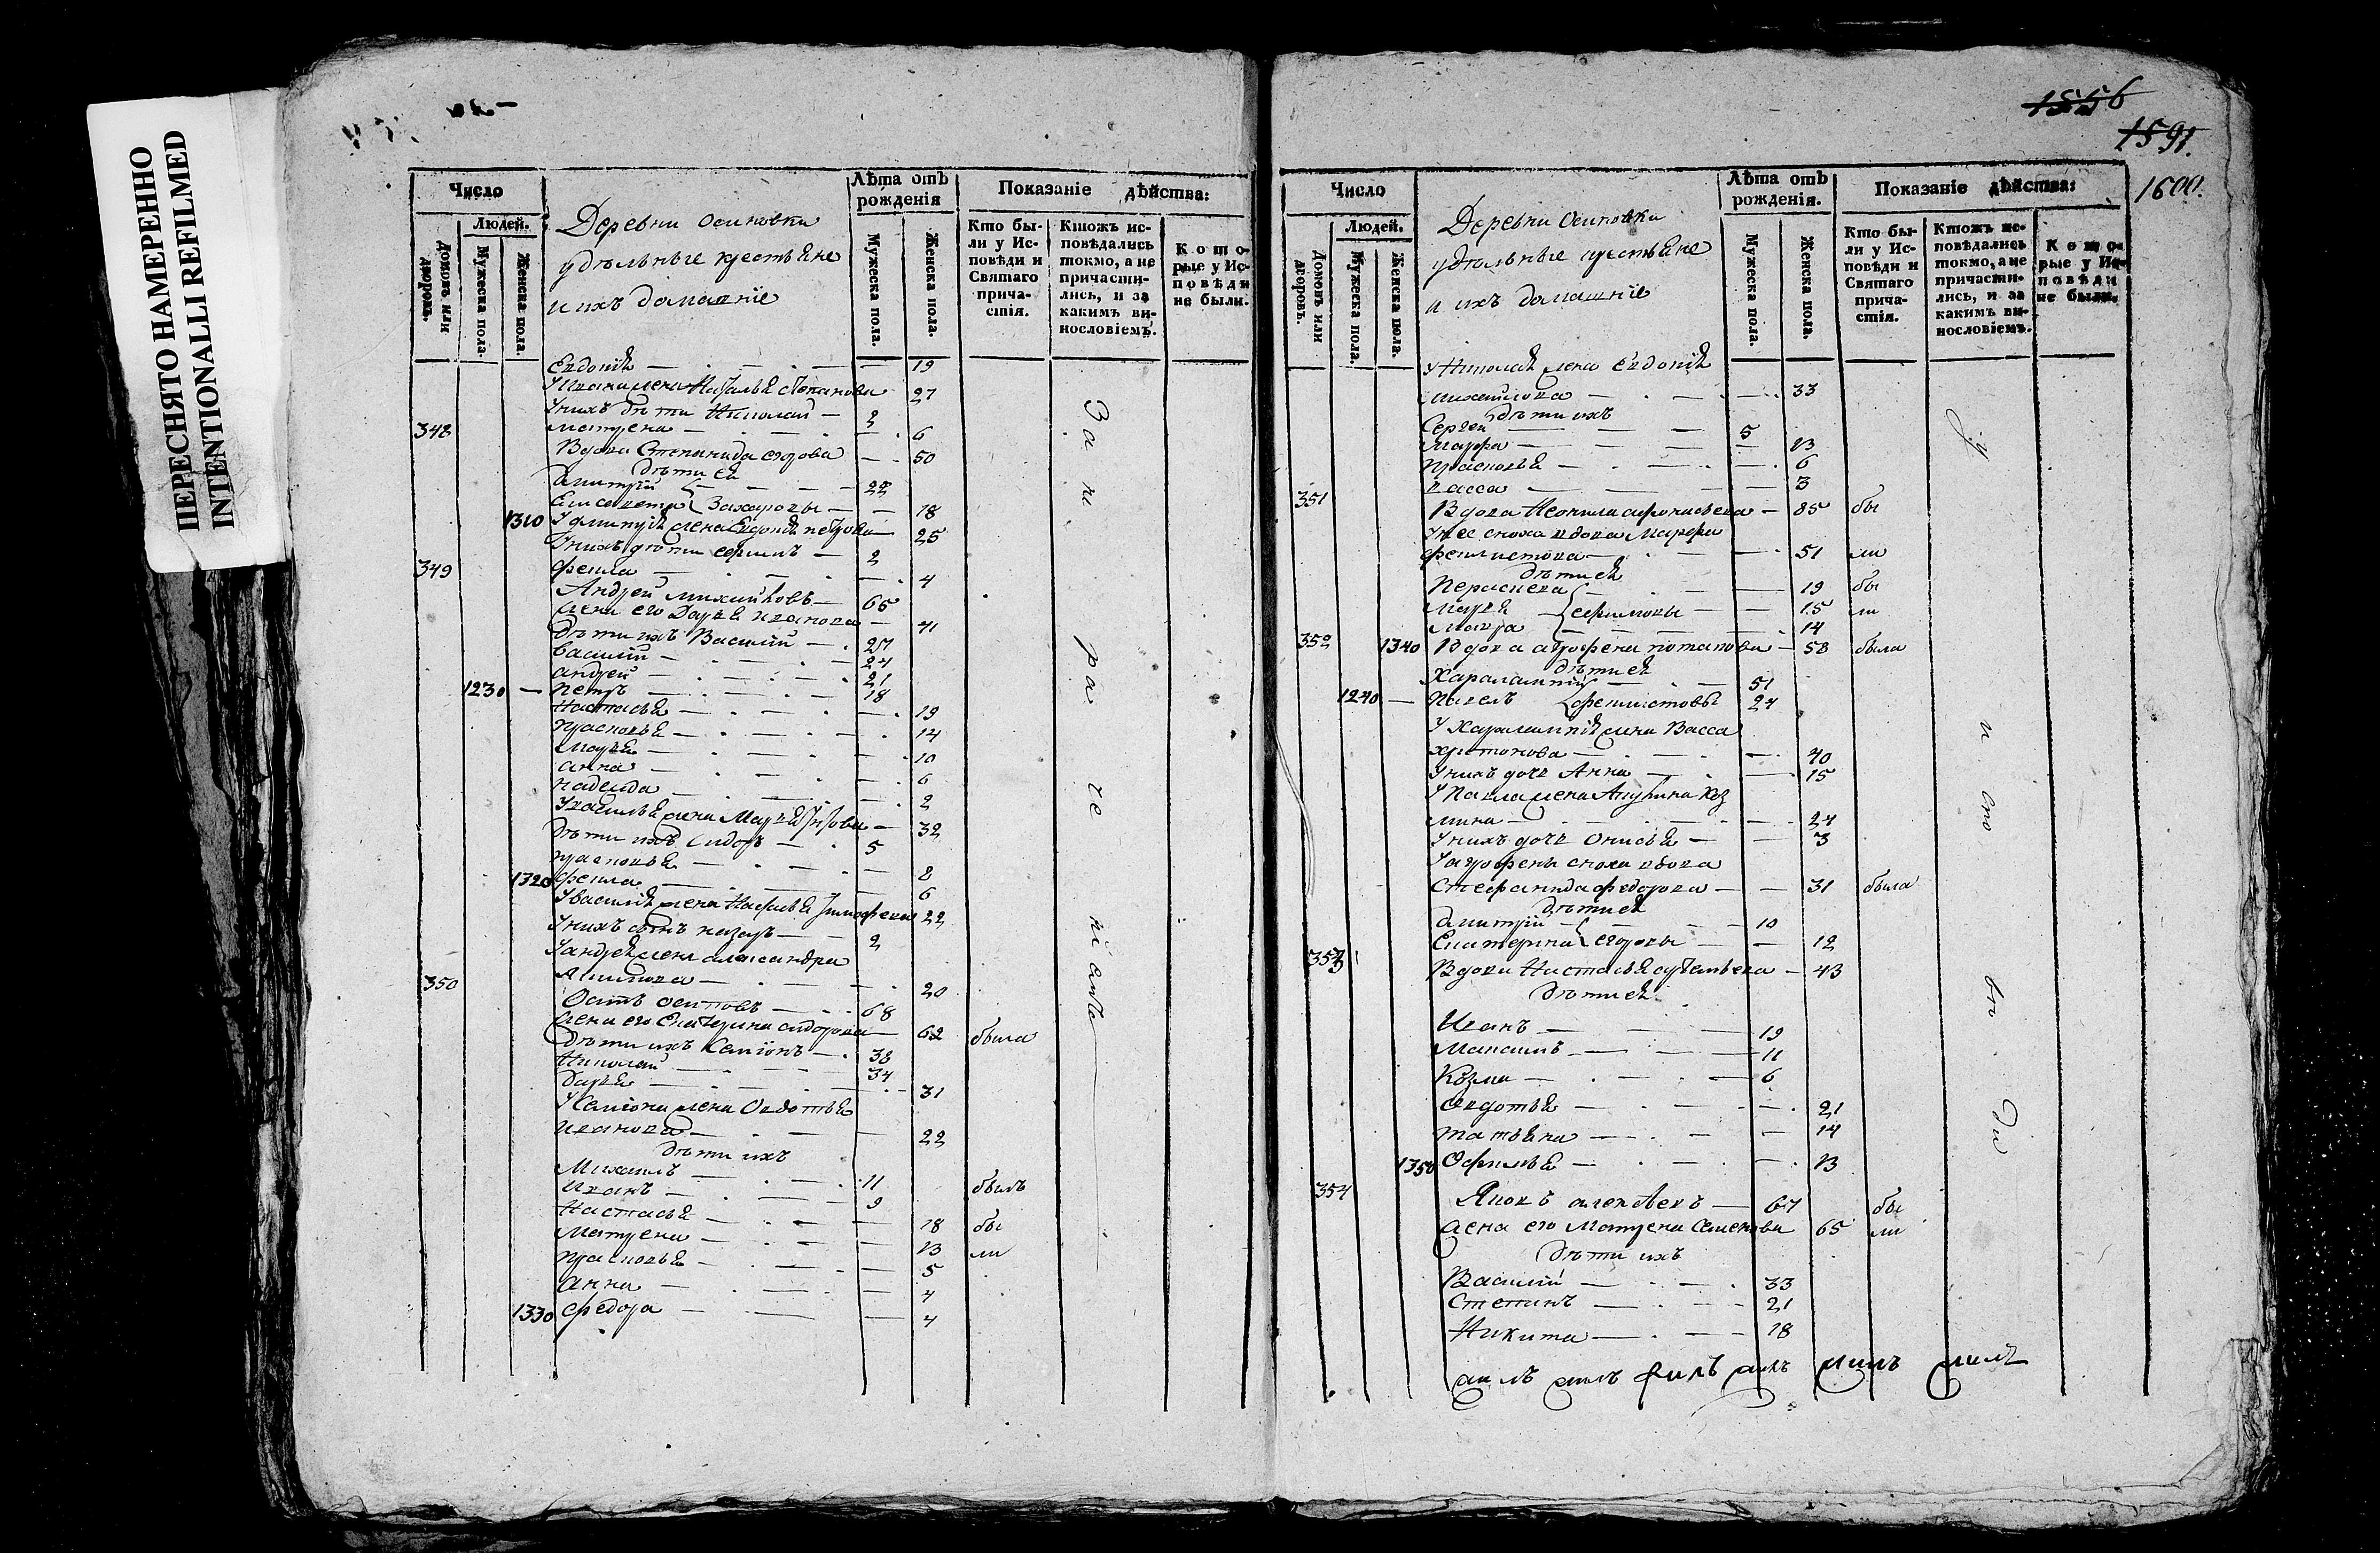 ПЕРЕСНЯТО НАМЕРЕННО
INTENTIONALLI REFILMED
1556
1591.
1600.
Число
Людей.
Домовъ или дворовъ.
Мужеска пола.
Женска пола.
Деревни Осиновки
удѣльные крестьяне
и ихъ домашніе
Лѣта отъ рожденія
Мужеска пола.
Женска пола.
Показаніе дѣйства:
Кто бы-
ли у Ис-
повѣди и
Святаго
прича-
стія.
Ктожъ ис-
повѣдались
токмо, а не
причасти-
лись, и за
какимъ ви-
нословіемъ.
Кото-
рые у Ис-
повѣди
не были.
Евдокія 19
У Ивана жена Наталья Степанова 27
У нихъ дѣти Николай 2
348 Матрена 6
Вдова Степанида Егорова 50
дѣти ея
Дмитрій 22
Елисавета Захаровы 18
1310 У Дмитрія жена Евдокія Петрова 25
У нихъ дѣти Ефимъ 2
349 Фекла 4
Андрей Михайловъ 65
Жена его Дарья Иванова 41
Дѣти ихъ Василій 27
Василій 24
Андрей 21
1230 Петръ 18
Настасья 19
Прасковья 14
Марья 10
Анна 6
Надежда 2
У Василья жена Марья 32
Дѣти ихъ Сидоръ 5
Прасковья 8
1320 Фекла 6
У Василія жена Наталья Тимофеева 22
У нихъ сынъ Назаръ 2
У Андрея жена Александра
350 Акимова 20
Осипъ Осиповъ 68
Жена его Екатерина Сидорова 62 была
Дѣти ихъ Семіонъ 38
Николай 34
Дарья 31
У Семіона жена Овдотья
Иванова 22
Дѣти ихъ
Михаилъ 11 былъ
Иванъ 9
Настасья 18 бы
Матрена 13 ли
Прасковья 5
Анна 4
1330 Федора 4
За нерачениемъ
Число
Людей.
Домовъ или дворовъ.
Мужеска пола.
Женска пола.
Деревни Осиновки
удѣльные крестьяне
и ихъ домашніе
Лѣта отъ рожденія.
Мужеска пола.
Женска пола.
Показаніе дѣйства:
Кто бы-
ли у Ис-
повѣди и
Святаго
прича-
стія.
Ктожъ ис-
повѣдались
токмо, а не
причасти-
лись, и за
какимъ ви-
нословіемъ.
Кото-
рые у Ис-
повѣди
не были.
У Николая жена Евдокія
Михайлова 33
дѣти ихъ
Сергей 5
Марфа 13
Прасковья 6
Васса 3
351 Вдова Неонила Афонасьева 85 бы
У нее сноха вдова Марфа
Феклистова 51 ли
Дѣти ея
Параскева 19 бы
Марья Ефимовы 15 ли
Мавра 14
352 1340 Вдова Агрофена Потапова 58 была
Дѣти ея
Харалампій 51
1240 Павелъ Феклистовы 24
У Харалампія жена Васса
Харитонова 40
У нихъ дочь Анна 15
У Павла жена Акулина Коз
мина 24
У нихъ дочь Онисья 3
У Агрофены сноха вдова
Стефанида Федорова 31 была
Дѣти ея
Дмитрій 10
Екатерина Егоровы 12
353 Вдова Настасья 43
Дѣти ея
Иванъ 19
Максимъ 11
Козма 6
Авдотья 21
Татьяна 14
1350 Офимья 13
354 Яковъ Алексѣевъ 67 бы
Жена его Матрена Семенова 65 ли
Дѣти ихъ
Василій 33
Степанъ 21
Никита 18